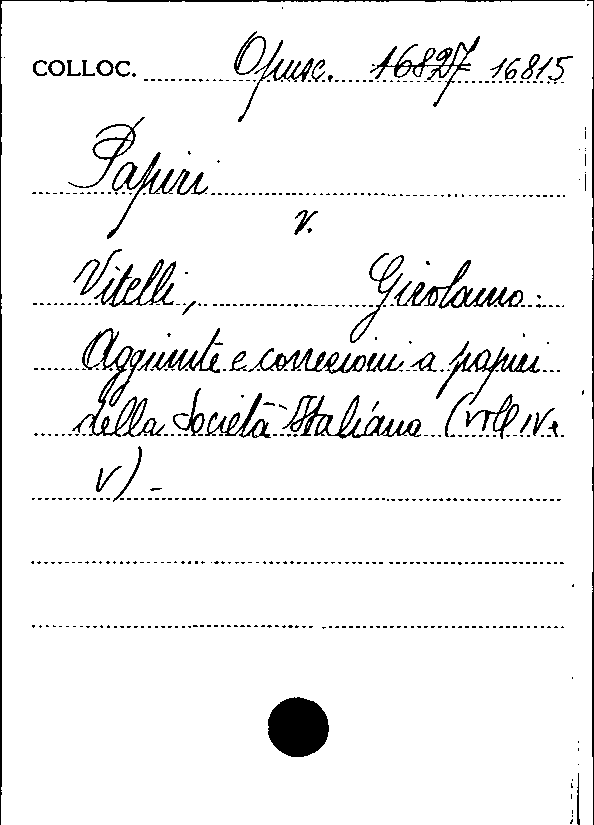 COLLOC. Opusc. 16827 16815
Papiri
v.
Vitelli, Girolamo.
Aggiunte e correzioni a papiri
della Società Italiana (voll IV e
V) -